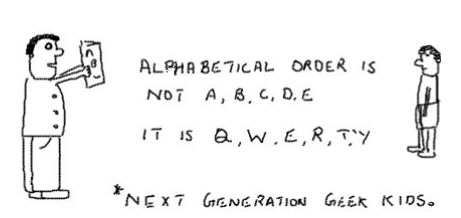 ALPHABETICAL ORDER IS
NOT A, B, C, D, E
IT IS Q, W, E, R, T, Y
*NEXT GENERATION GEEK KIDS.